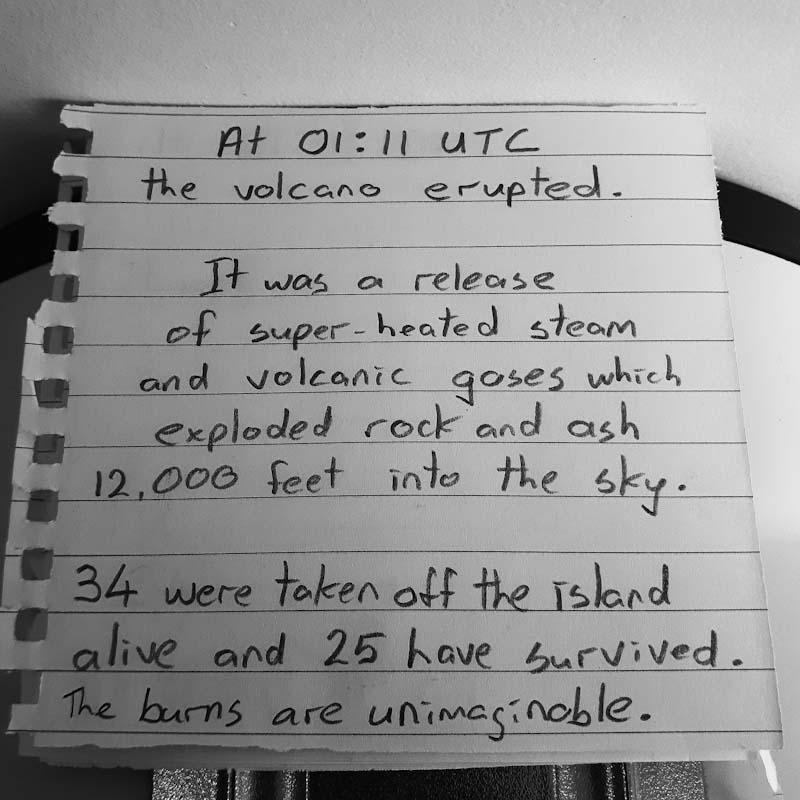 At 01:11 UTC
the volcano erupted.
It was a release
of super-heated steam
and volcanic gases which
exploded rock and ash
12,000 feet into the sky.
34 were taken off the island
alive and 25 have survived.
The burns are unimaginable.